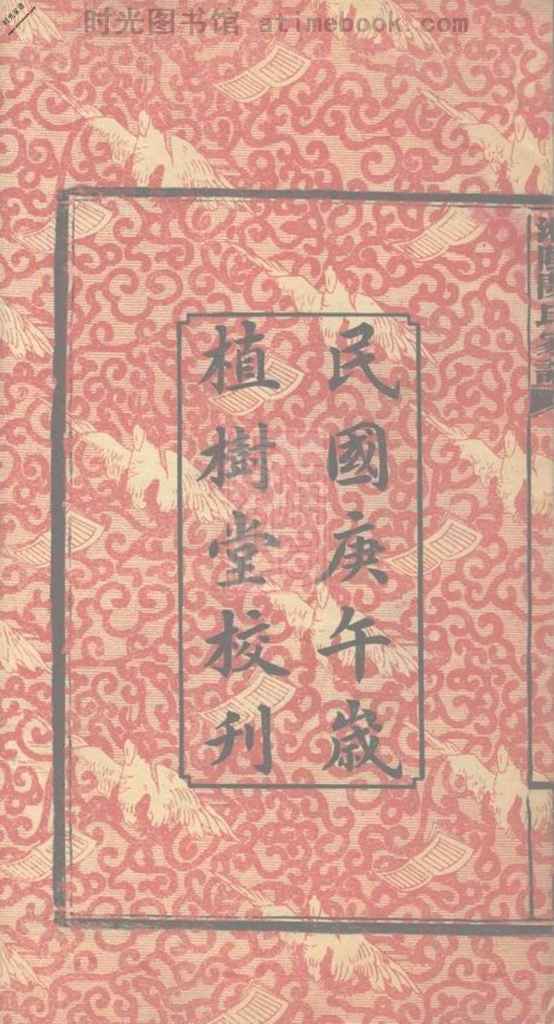 时光图书馆 atimebook.com
民國庚午歲
植樹堂校刊